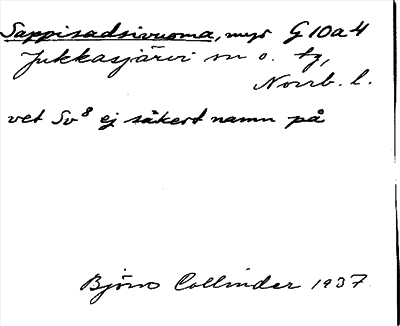 Sappisadsivuoma, myr G 10 a 4
Jukkasjärvi sn o. tg,
Norrb. l.
vet Sv⁸ ej säkert namn på
Björn Collinder 1937